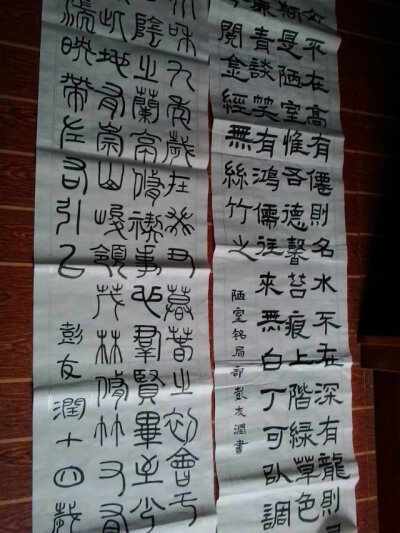 不在高有僊則名水不在深有龍則
斯是陋室惟吾德馨苔痕上階緑草色
簾青談笑有鴻儒往來無白丁可以調
閱金經無絲竹之
陋室銘局部彭友潤書
永和九年歲在癸丑暮春之初會于
陰之蘭亭脩禊事也群賢畢至少
此地有崇山峻領茂林脩竹又有
湍映帶左右引以
彭友潤十四歲